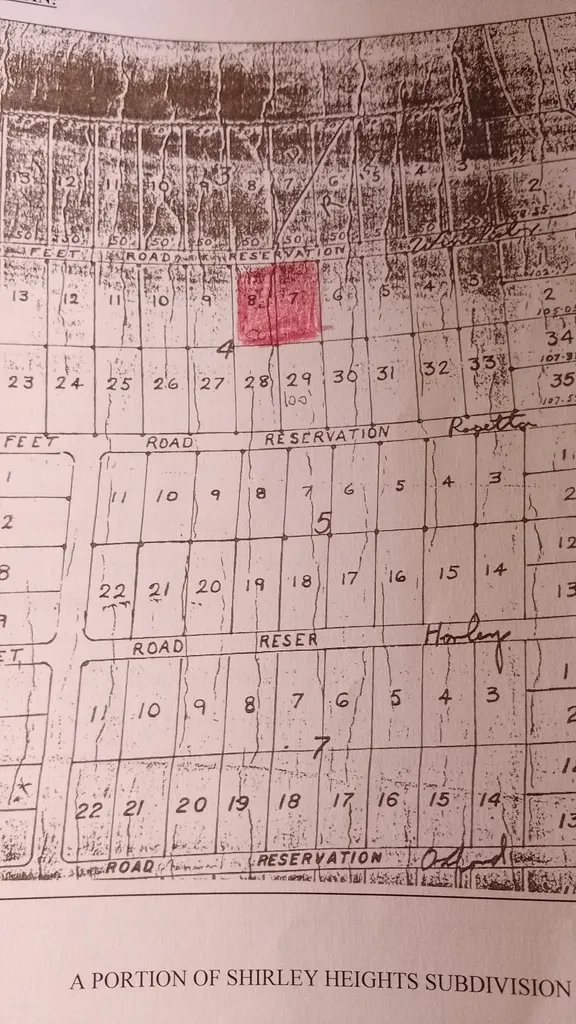 13 12 11 10 9 3 8 7 6 5 4 3
2
50 50 50 50 50 50 50
FEET ROAD RESERVATION
13 12 11 10 9 8 7 6 5 4 3 2
105.0
4
34
107.3
23 24 25 26 27 28 29 30 31 32 33 35
107.5
FEET ROAD RESERVATION Rosetta
1 11 10 9 8 7 6 5 4 3 11
2 5 2
12
8 22 21 20 19 18 17 16 15 14 13
9
ET ROAD RESER Horley
11 10 9 8 7 6 5 4 3 1
2
7
22 21 20 19 18 17 16 15 14 13
ROAD RESERVATION Oxford
A PORTION OF SHIRLEY HEIGHTS SUBDIVISION